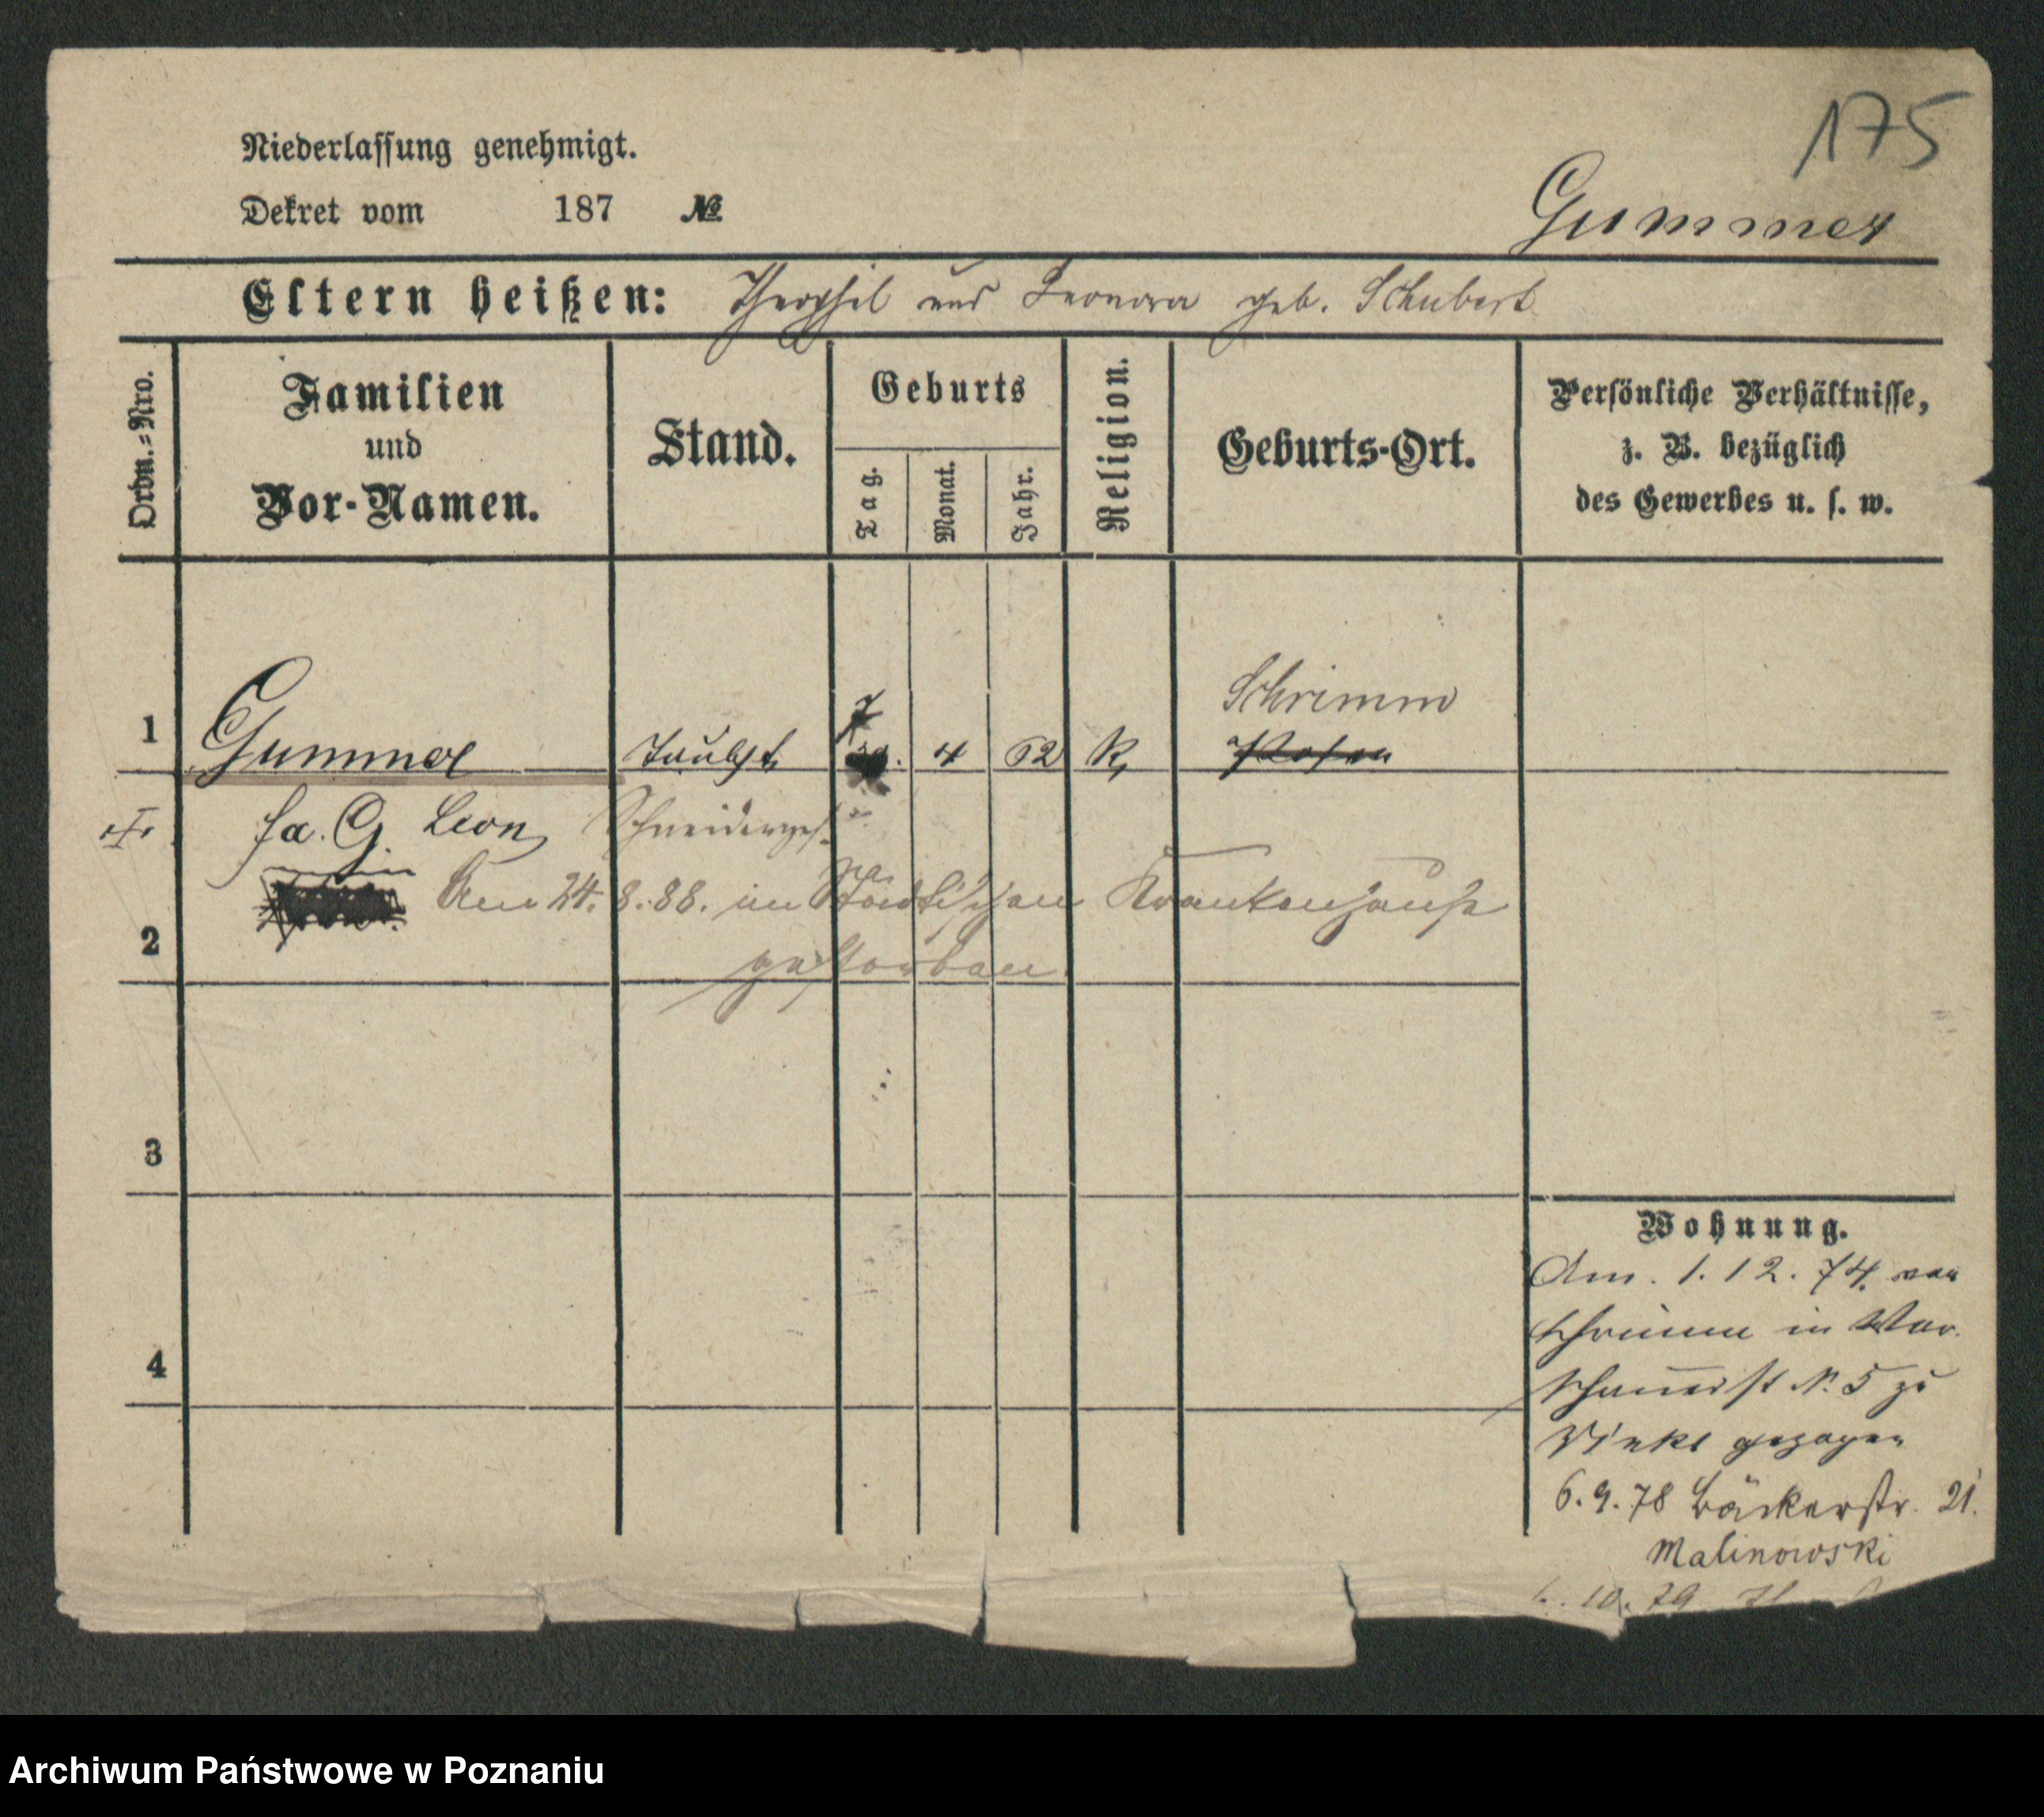 175
Niederlassung genehmigt.
Dekret vom 187 №
Gummer
Eltern heißen: Theophil und Leonora geb. Schubert
Ordn.=Nro.
Familien
und
Vor-Namen.
Stand.
Geburts
Tag.
Monat.
Jahr.
Religion.
Geburts-Ort.
Persönliche Verhältnisse,
z. B. bezüglich
des Gewerbes u. s. w.
Schrimm
7
1 Gummer Taubst. 4 62 K, Posen
fx. G. Leon, Schneiderges.
Am 24.8.88. im Städtischen Krankenhause
2
gestorben
3
4
Wohnung.
Am. 1.12.74. von
Schrimm in War
schauerst N. 5 zu
gezogen
6.9.78 Bäckerstr. 21.
Malinowski
10.79
Archiwum Państwowe w Poznaniu